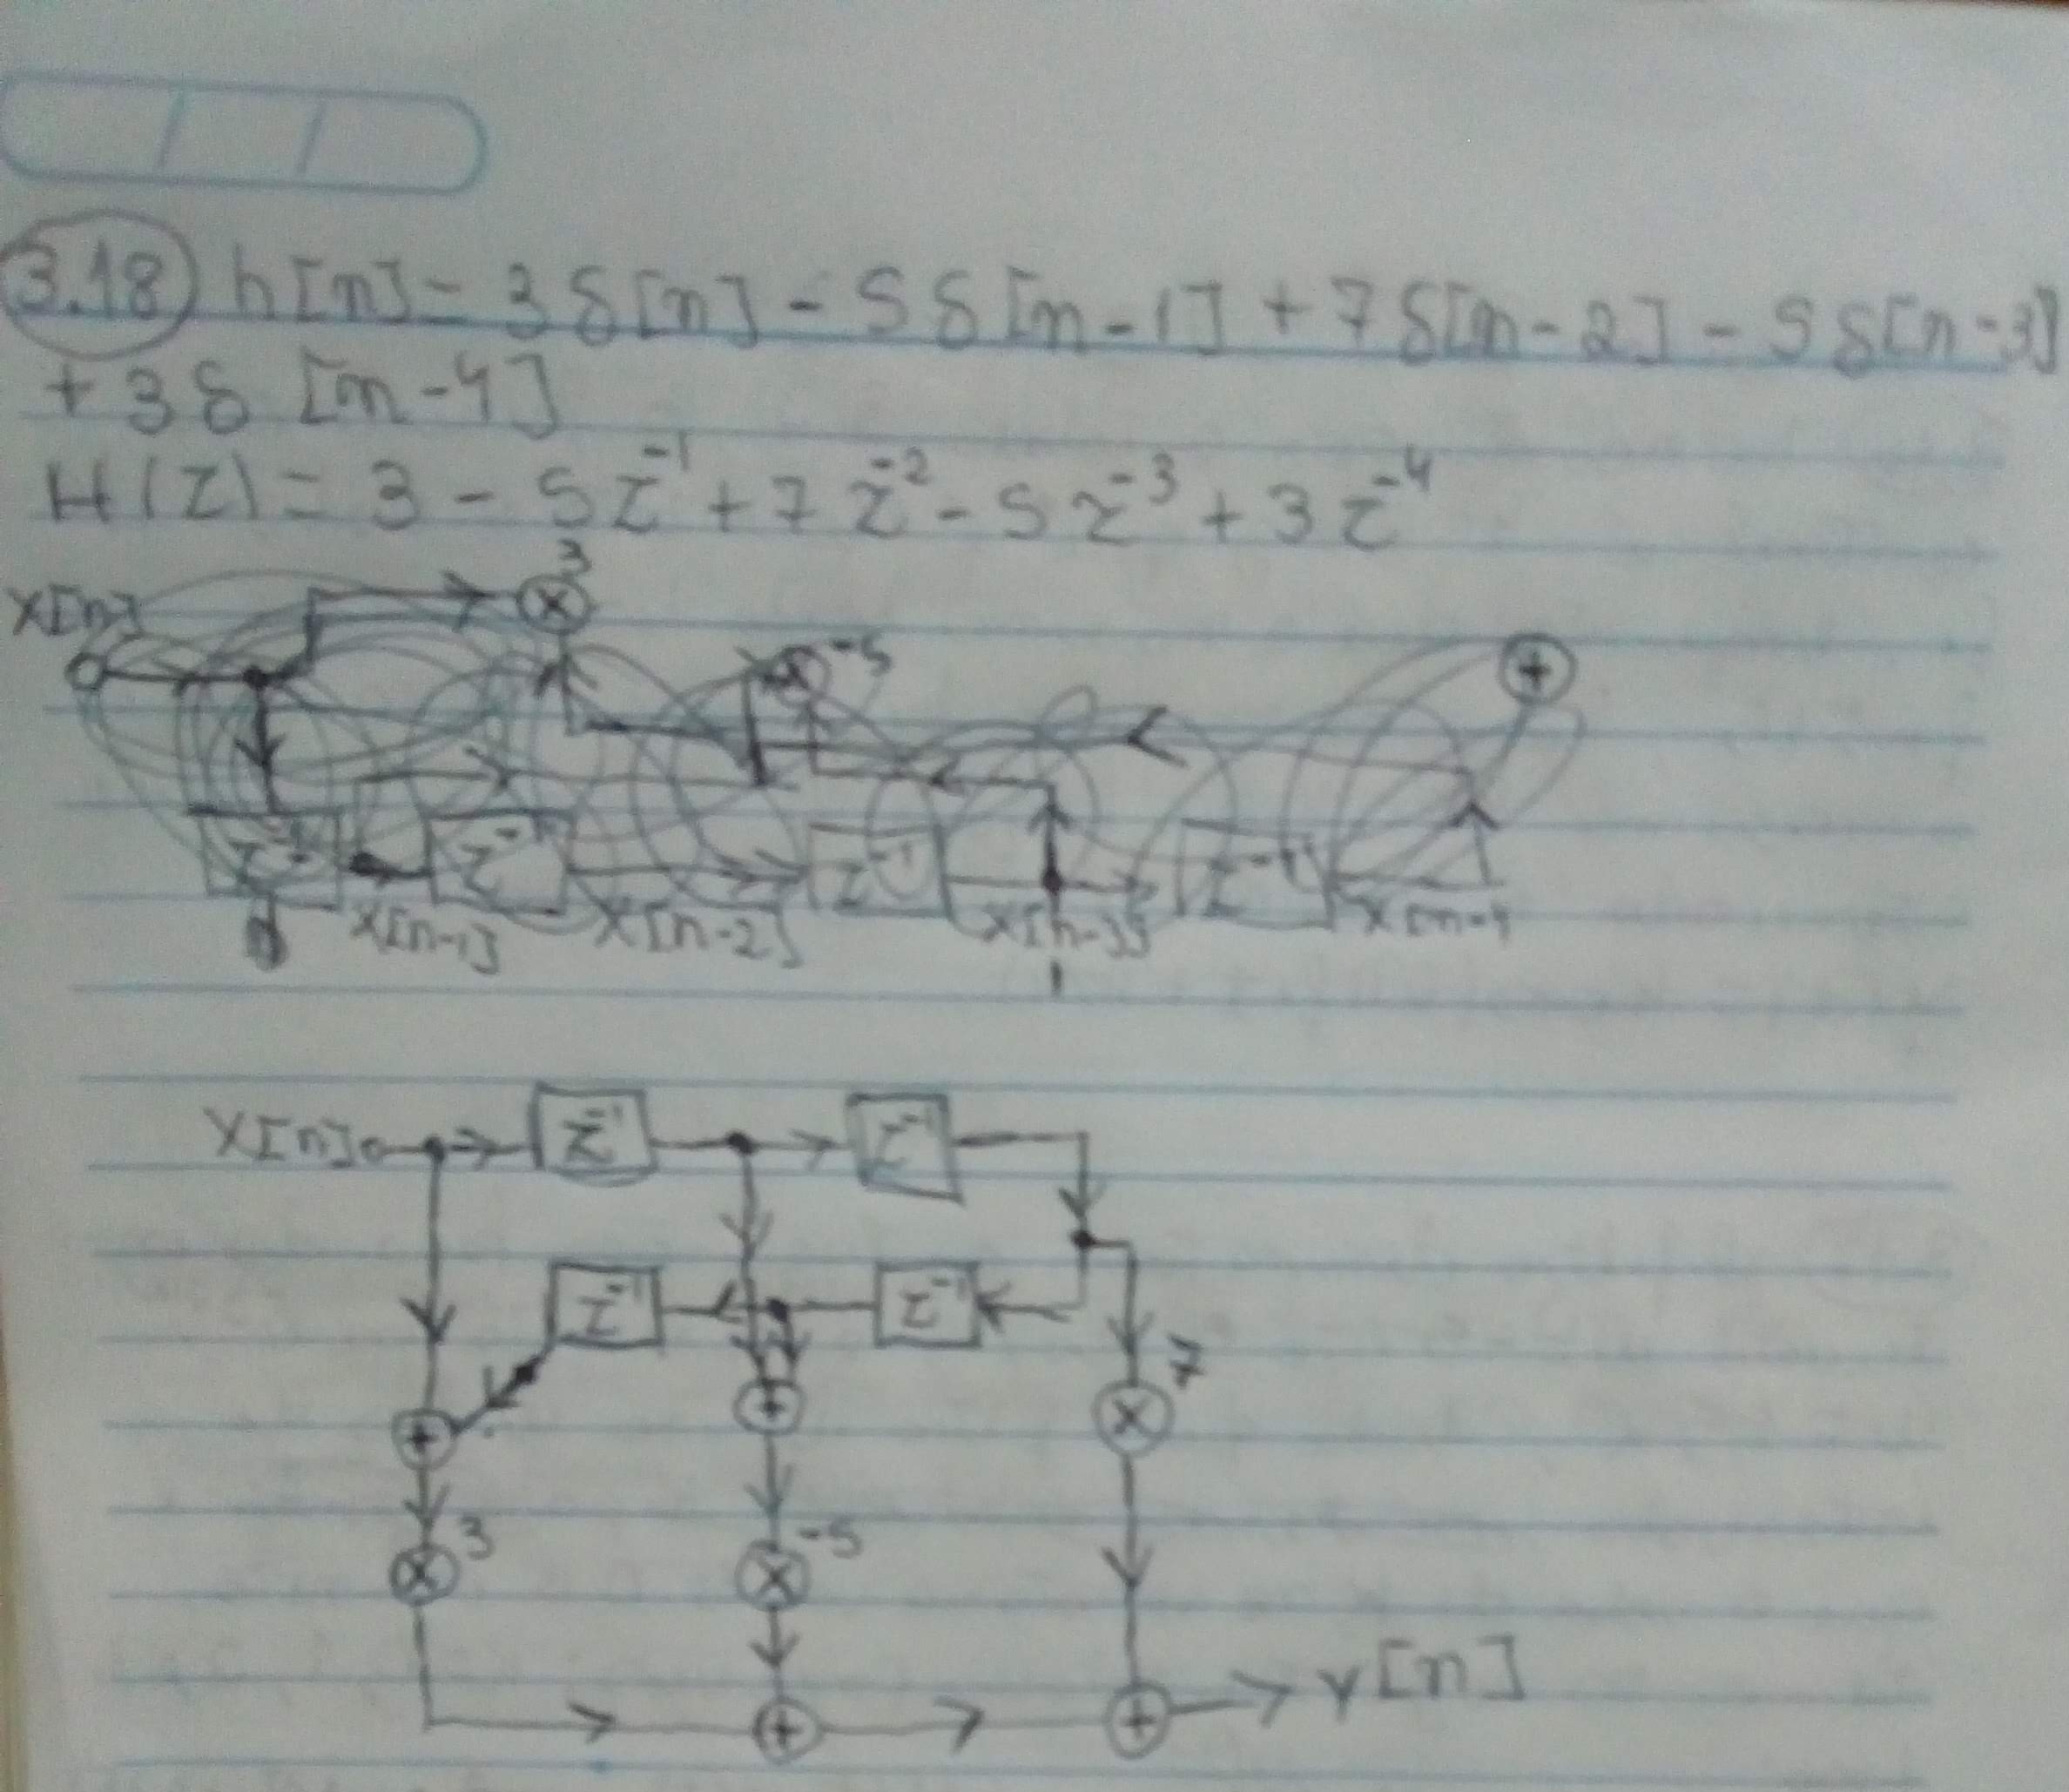 3.18 h[n] = 3δ[n] - 5δ[n-1] + 7δ[n-2] - 5δ[n-3]
+ 3δ[n-4]
H(z) = 3 - 5z⁻¹ + 7z⁻² - 5z⁻³ + 3z⁻⁴
3
x[n]
-5
z⁻¹ z⁻¹ z⁻¹ z⁻¹
x[n-1] x[n-2] x[n-3] x[n-4
x[n] z⁻¹ z⁻¹
z⁻¹ z⁻¹
7
3 -5
y[n]